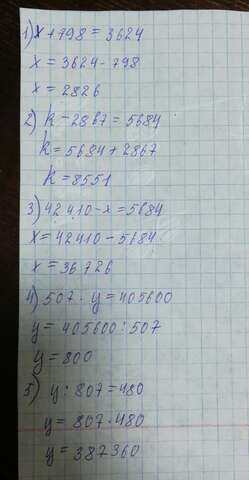 1) x + 798 = 3624
x = 3624 - 798
x = 2826
2) k - 2867 = 5684
k = 5684 + 2867
k = 8551
3) 42410 - x = 5684
x = 42410 - 5684
x = 36726
4) 507 · y = 405600
y = 405600 : 507
y = 800
5) y : 807 = 480
y = 807 · 480
y = 387360